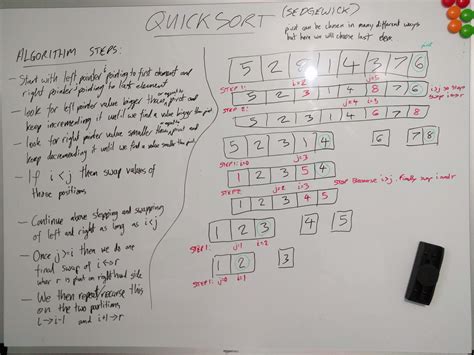 QUICKSORT (SEDGEWICK)
pivot can be chosen in many different ways
but here we will choose last elem
ALGORITHM STEPS:
- Start with left pointer i pointing to first element and
right pointer j pointing to last element
- look for left pointer value bigger than or equal to pivot and
keep incrementing it until we find a value bigger than pivot
- look for right pointer value smaller than or equal to pivot and
keep decrementing it until we find a value smaller than pivot
- If i < j then swap values of
those positions
- Continue above stepping and swapping
of left and right as long as i<j
- Once j>i then we do one
final swap of i↔r
where r is pivot on right hand side
- We then repeat/recurse this
on the two partitions
i→i-1 and i+1→r
pivot
5 2 8 1 4 3 7 6
i=2 j=5
STEP 1: 5 2 3 1 4 8 7 6
j=4 i=5
STEP 2: 5 2 3 1 4 6 7 8
5 2 3 1 4 6 7 8
STEP 1: i=0 j=3
1 2 3 5 4
STEP 2: j=2 i=3
1 2 3 4 5
STOP Because i>j. Finally swap i and r
1 2 3 4 5
STEP 1: j=1 i=2
1 2 3
STEP 1: j=0 i=1